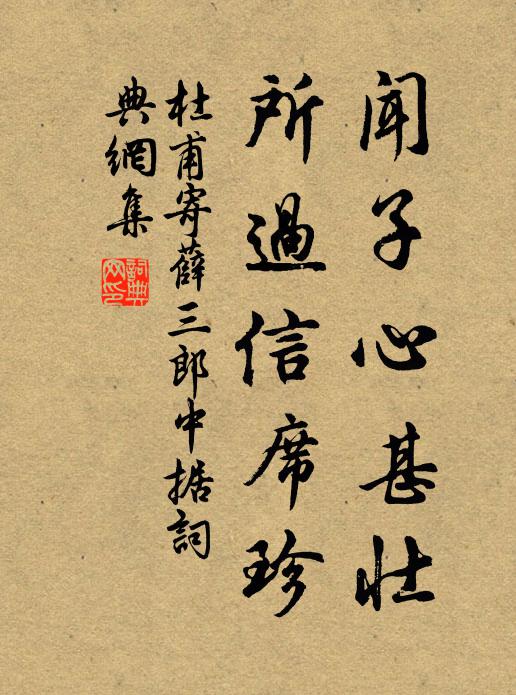 闻子心甚壮
所過信席珍
杜甫寄薛三郎中据詞
典網集
詞典网印